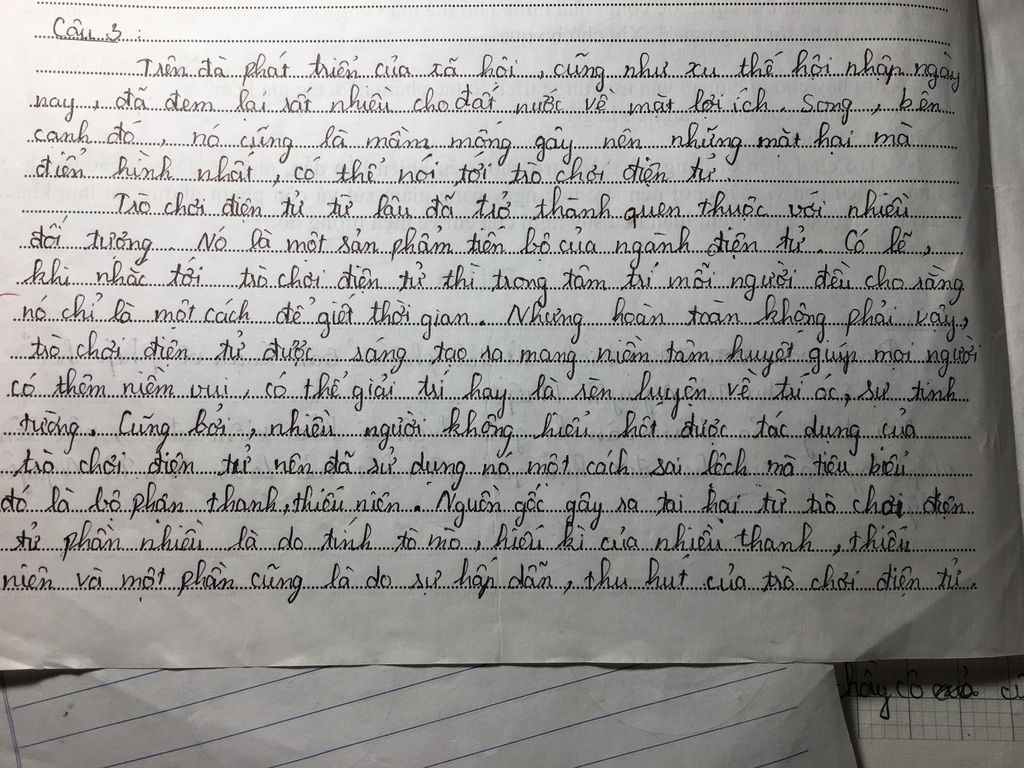 Câu 3 :
Trên đà phát triển của xã hội, cũng như xu thế hội nhập ngày
nay, đã đem lại rất nhiều cho đất nước về mặt lợi ích. Song, bên
cạnh đó, nó cũng là mầm mống gây nên những mặt hại mà
điển hình nhất, có thể nói tới trò chơi điện tử.
Trò chơi điện tử từ lâu đã trở thành quen thuộc với nhiều
đối tượng. Nó là một sản phẩm tiến bộ của ngành điện tử. Có lẽ,
khi nhắc tới trò chơi điện tử thì trong tâm trí mỗi người đều cho rằng
nó chỉ là một cách để giết thời gian. Nhưng hoàn toàn không phải vậy,
trò chơi điện tử được sáng tạo ra mang niềm tâm huyết giúp mọi người
có thêm niềm vui, có thể giải trí hay là rèn luyện về trí óc, sự tinh
tường. Cũng bởi, nhiều người không hiểu hết được tác dụng của
trò chơi điện tử nên đã sử dụng nó một cách sai lệch mà tiêu biểu
đó là bộ phận thanh, thiếu niên. Nguồn gốc gây ra tai hại từ trò chơi điện
tử phần nhiều là do tính tò mò, hiếu kì của nhiều thanh, thiếu
niên và một phần cũng là do sự hấp dẫn, thu hút của trò chơi điện tử.
thầy cô